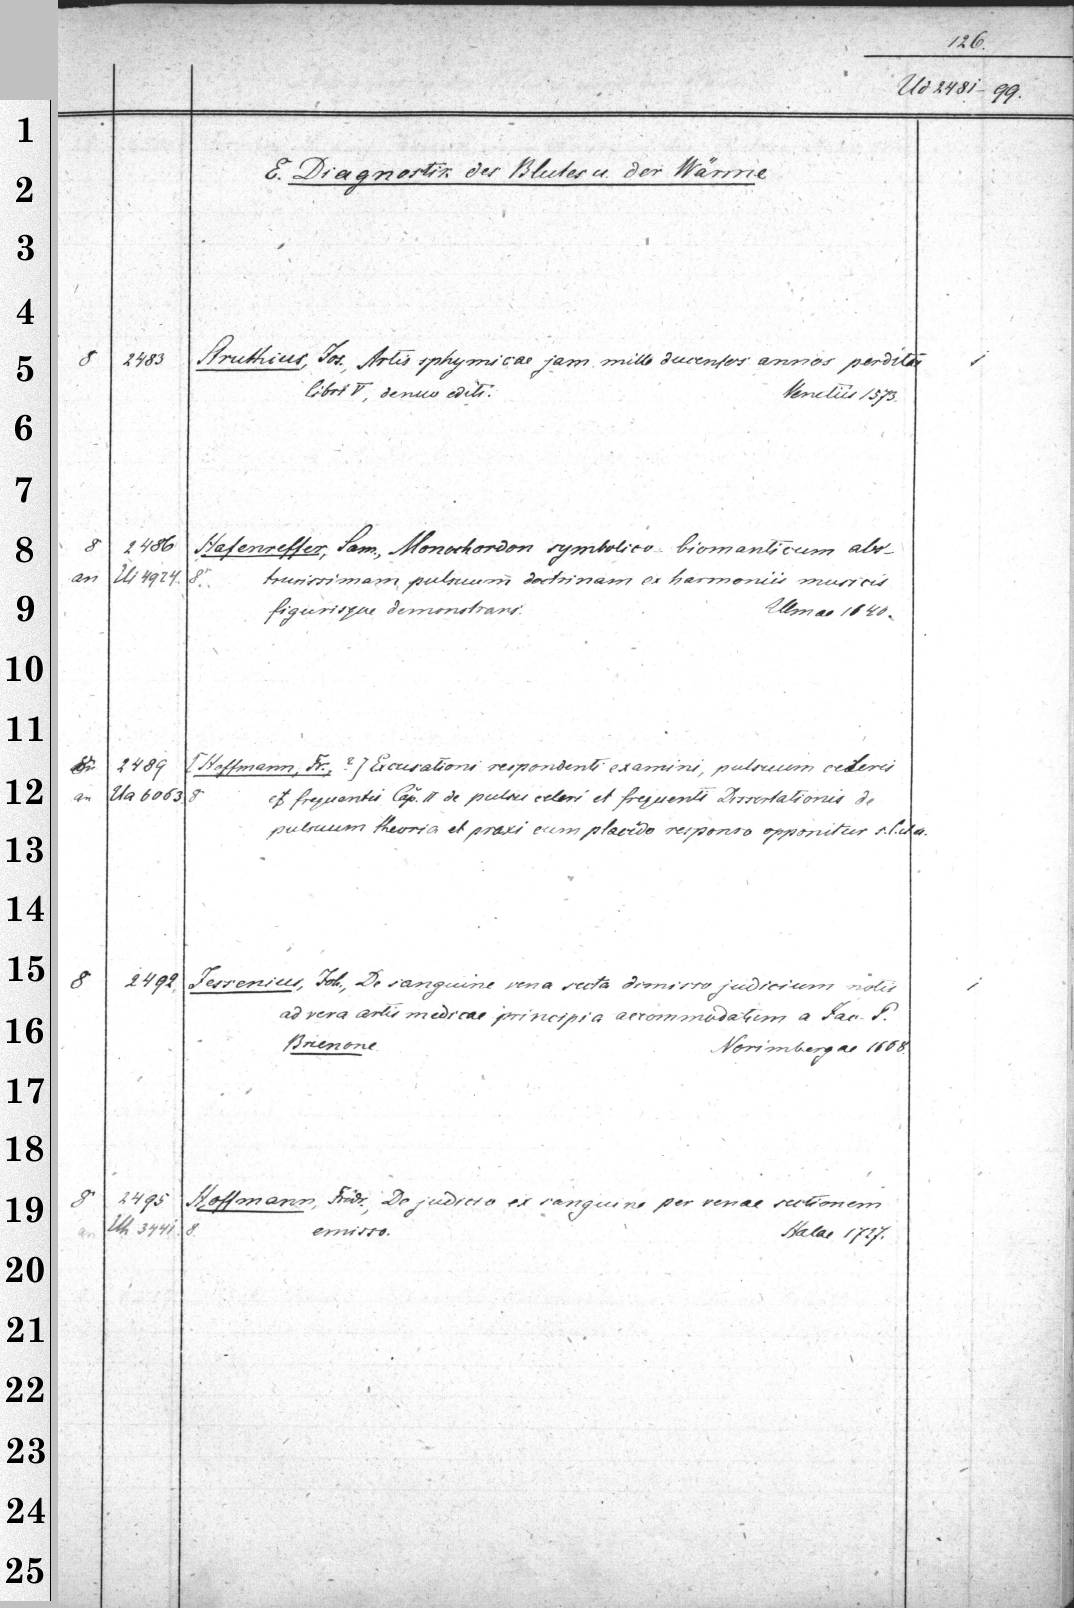 126.
Ud 2481-99.
1
E. Diagnostik des Blutes u. der Wärme
2
3
4
5
8 2483 Struthius, Jos., Artis sphymicae jam mille ducentos annos perditae 1
libri V, denuo editi. Venetiis 1573.
6
7
8
8 2486 Hafenreffer, Sam., Monochordon symbolico-biomanticum abs-
an Ui 4924. 8°. trusissimam pulsuum doctrinam ex harmoniis musicis
9
figurisque demonstrans. Ulmae 1640.
10
11
2489 [Hoffmann, Fr., ?] Excusationi respondenti examini, pulsuum celeris
12
an Ua 6063 8 et frequentis Cap. II de pulsu celeri et frequenti Dissertationis de
pulsuum theoria et praxi cum placido responso opponitur s. l. et a.
13
14
15
8 2492. Jessenius, Joh., De sanguine vena secta dimisso judicium notis 1
ad vera artis medicae principia accommodatum a Jac. P.
16
Brienone Norimbergae 1668.
17
18
19
8 2495 Hoffmann, Fridr., De judicio ex sanguine per venae sectionem
an Uh 3441. 8. emisso. Halae 1727.
20
21
22
23
24
25